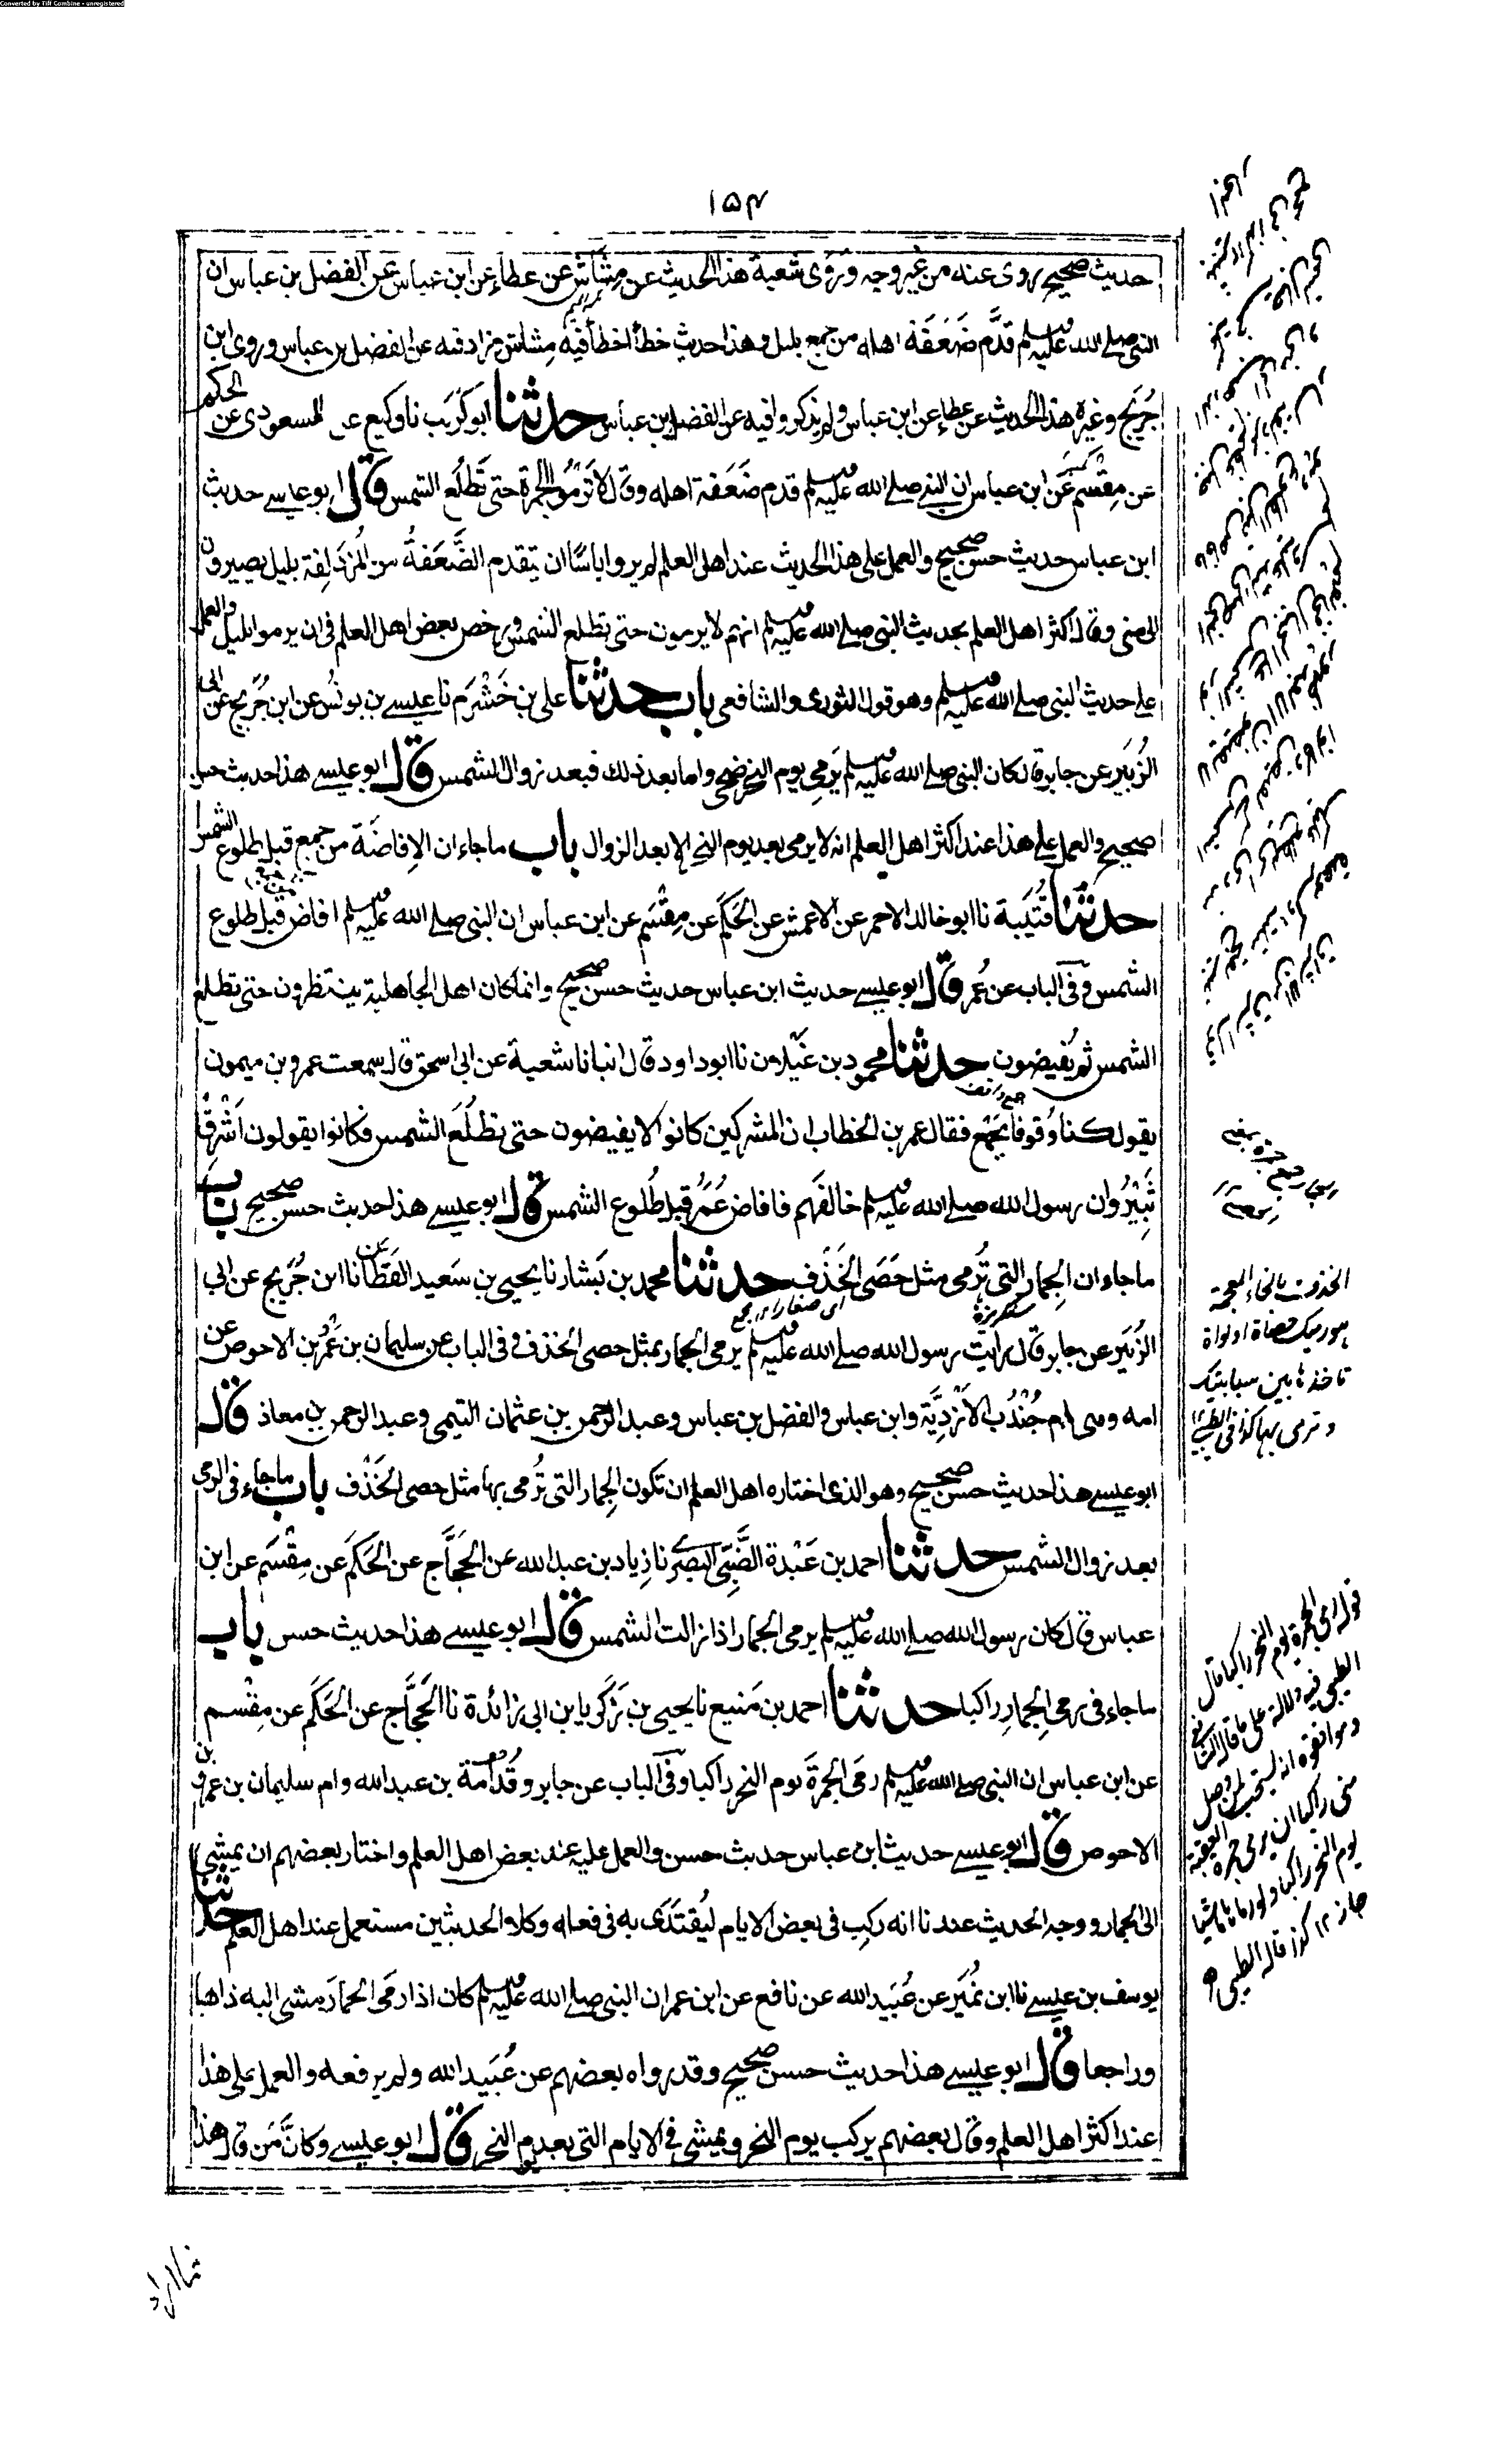 Converted by Tiff Combine - unregistered
۱۵۴
حديث صحيح روى عنه من غير وجه وَرَوٰى شعبة هذا الحديث عن مِشَاشٍ عن عطاء عن ابن عباس عن الفضل بن عباس ان
النبى صلى الله عليه وسلم قدَّم ضَعَفَة اهله من جمع بليل وهذا حديث خطأ اخطأ فيه مِشاش زاد فيه عن الفضل بن عباس وروى ابن
جُرَيج وغيره هذا الحديث عن عطاء عن ابن عباس ولم يذكروا فيه عن الفضل بن عباس حدثنا ابو كُرَيب نا وكيع عن المسعودى عن الحكم
عن مِقْسَم عن ابن عباس ان النبى صلى الله عليه وسلم قدم ضَعَفة اهله وقال لا تَرْمُوا الجمرة حتى تَطلُع الشمس قال ابو عيسى حديث
ابن عباس حديث حسن صحيح والعمل على هذا الحديث عند اهل العلم لم يروا باسًا ان يتقدم الضَّعَفةُ من المُزدَلِفة بليل يصيرون
الى منى وقال اكثر اهل العلم بحديث النبى صلى الله عليه وسلم انهم لا يرمون حتى تطلع الشمس ورخص بعض اهل العلم فى ان يرموا بليل والعمل
على حديث النبى صلى الله عليه وسلم وهو قول الثورى والشافعى باب حدثنا على بن خَشْرَم نا عيسى بن يونس عن ابن جُرَيج عن ابى
الزُبَير عن جابر قال كان النبى صلى الله عليه وسلم يَرمِى يوم النحر ضحى واما بعد ذلك فبعد زوال الشمس قال ابو عيسى هذا حديث حسن
صحيح والعمل على هذا عند اكثر اهل العلم انه لا يرمى بعد يوم النحر الا بعد الزوال باب ما جاء ان الاِفاضَة من جمع قبل طلوع الشمس
حدثنا قُتَيبة نا ابو خالد الاحمر عن الاعمش عن الحَكَم عن مِقْسَم عن ابن عباس ان النبى صلى الله عليه وسلم افاض قبل طلوع
الشمس وفى الباب عن عُمر قال ابو عيسى حديث ابن عباس حديث حسن صحيح وانما كان اهل الجاهلية ينتظرون حتى تطلع
الشمس ثم يُفيضون حدثنا محمود بن غَيْلان نا ابو داود قال انبانا شعبة عن ابى اسحق قال سمعت عمرو بن ميمون
يقول كنا وُقوفا بجَمْع فقال عمر بن الخطاب ان المشركين كانوا لا يفيضون حتى تطلُعَ الشمس فكانوا يقولون اَشْرِقْ
ثَبِيْرُ وان رسول الله صلى الله عليه وسلم خالفَهم فافاض عُمَرُ قبل طُلوع الشمس قال ابو عيسى هذا حديث حسن صحيح باب
ما جاء ان الجِمار التى تُرمى مثل حَصَى الخَذْف حدثنا محمد بن بَشار نا يحيى بن سَعيد القَطّان نا ابن جُرَيج عن ابى
الزُبَير عن جابر قال رايت رسول الله صلى الله عليه وسلم يرمى الجمار بمثل حصى الخذف وفى الباب عن سليمان بن عَمْرو بن الاحوص عن
امه وهى ام جُنْدُب الاَزْدِيَّة وابن عباس والفضل بن عباس وعبد الرحمن بن عثمان التيمى وعبد الرحمن بن معاذ قال
ابو عيسى هذا حديث حسن صحيح وهو الذى اختاره اهل العلم ان تكون الجِمار التى تُرمى بها مثل حصى الخَذْف باب ما جاء فى الرمى
بعد زوال الشمس حدثنا احمد بن عَبْدة الضَّبِّى البصرى نا زِياد بن عبد الله عن الحَجَّاج عن الحَكَم عن مِقْسَم عن ابن
عباس قال كان رسول الله صلى الله عليه وسلم يرمى الجمار اذا زالت الشمس قال ابو عيسى هذا حديث حسن باب
ما جاء فى رمى الجِمارِ راكبا حدثنا احمد بن مَنيع نا يحيى بن زَكَريا بن ابى زائدة نا الحَجَّاج عن الحَكَم عن مِقْسم
عن ابن عباس ان النبى صلى الله عليه وسلم رمى الجمرَةَ يوم النحر راكبا وفى الباب عن جابر وقُدامة بن عبد الله وام سليمان بن عمرو بن
الاحوص قال ابو عيسى حديث ابن عباس حديث حسن والعمل عليه عند بعض اهل العلم واختار بعضهم ان يمشى
الى الجمار ووجه الحديث عندنا انه ركِب فى بعض الايام ليُقتَدَى به فى فعله وكلا الحديثين مستعمل عند اهل العلم حدثنا
يوسف بن عيسى نا ابن نُمَير عن عُبَيد الله عن نافع عن ابن عمر ان النبى صلى الله عليه وسلم كان اذا رمى الجمارَ مشى اليه ذاهبا
وراجعا قال ابو عيسى هذا حديث حسن صحيح وقد رواه بعضهم عن عُبَيد الله ولم يرفعه والعمل على هذا
عند اكثر اهل العلم وقال بعضهم يركب يوم النحر ويمشى فى الايام التى بعد يوم النحر قال ابو عيسى وكانَّ مَن قال هذا
الخذف بالخاء المعجمة
هو رميك حصاة او نواة
تاخذها بين سبابتيك
وترمى بها كذا فى الطيبى
قوله رمى الجمرة يوم النحر راكبا قال
الطيبى فيه دلالة على ما قاله الشافعى
وموافقوه انه يستحب لمن وصل
منى راكبا ان يرمى جمرة العقبة
يوم النحر راكبا ولو رماها ماشيا
جاز ۱۲ كذا قاله الطيبى